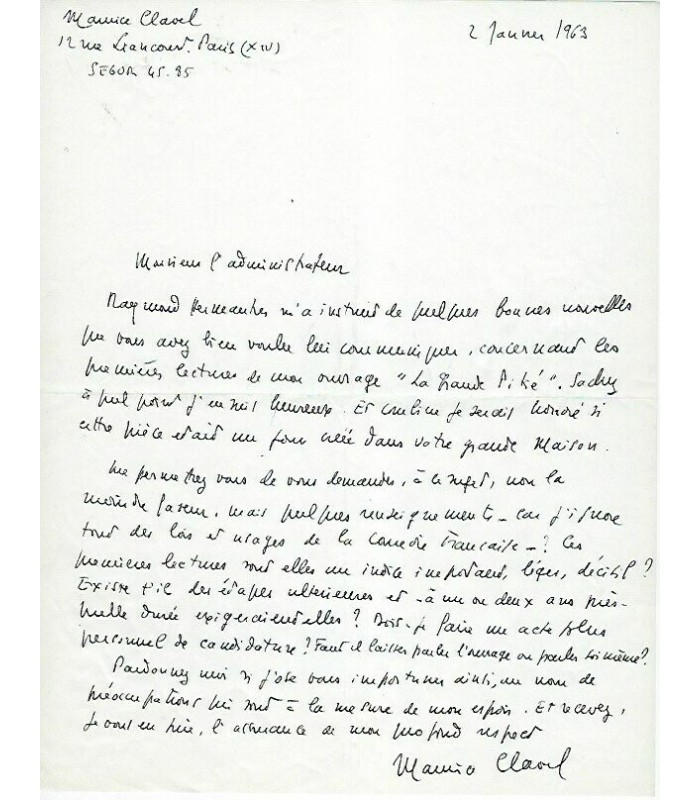 Maurice Clavel
12 rue Liancourt. Paris (XIV)
SEGUR 45.85
2 Janvier 1963
Monsieur l'administrateur
Raymond Hermantier m'a instruit de quelques bonnes nouvelles
que vous avez bien voulu lui communiquer, concernant les
premières lectures de mon ouvrage "La Grande Pitié". Sachez
à quel point j'en suis heureux. Et combien je serais honoré si
cette pièce était un jour créée dans votre grande Maison.
me permettrez vous de vous demander, à ce sujet, non la
moindre faveur, mais quelques renseignements - car j'ignore
tout des lois et usages de la Comédie Française - ? Ces
premières lectures sont elles un indice important, léger, décisif ?
Existe t'il des étapes ultérieures et - à un ou deux ans près -
quelle durée exigeraient elles ? Dois-je faire un acte plus
personnel de candidature ? Faut il laisser parler l'ouvrage ou parler soi même ?
Pardonnez moi si j'ose vous importuner ainsi, au nom de
préoccupations qui sont à la mesure de mon espoir. Et recevez,
je vous en prie, l'assurance de mon profond respect
Maurice Clavel